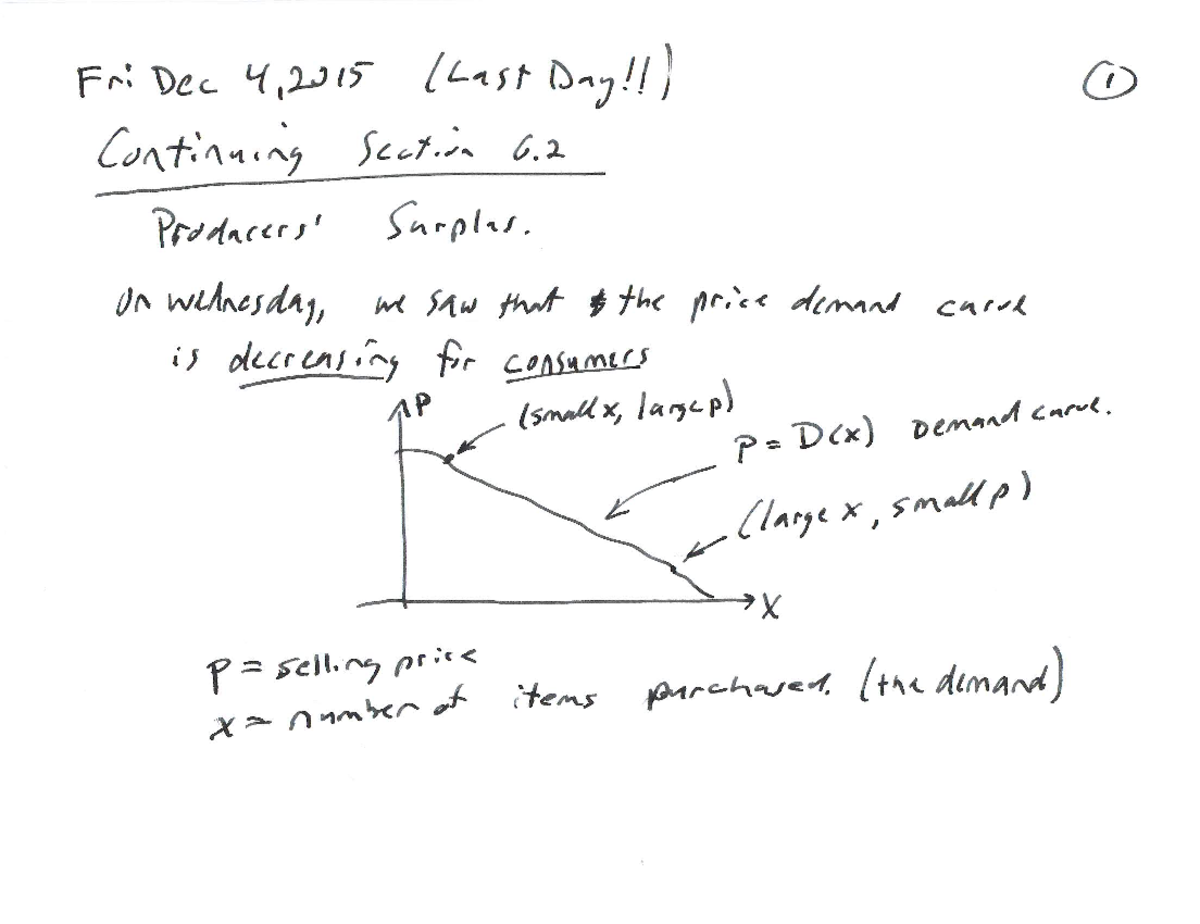 Fri Dec 4, 2015 (Last Day!!)
1
Continuing Section 6.2
Producers' Surplus.
On Wednesday, we saw that the price demand curve
is decreasing for consumers
P
(small x, large p)
P = D(x) Demand curve.
(large x, small p)
X
P = selling price
x = number of items purchased. (the demand)